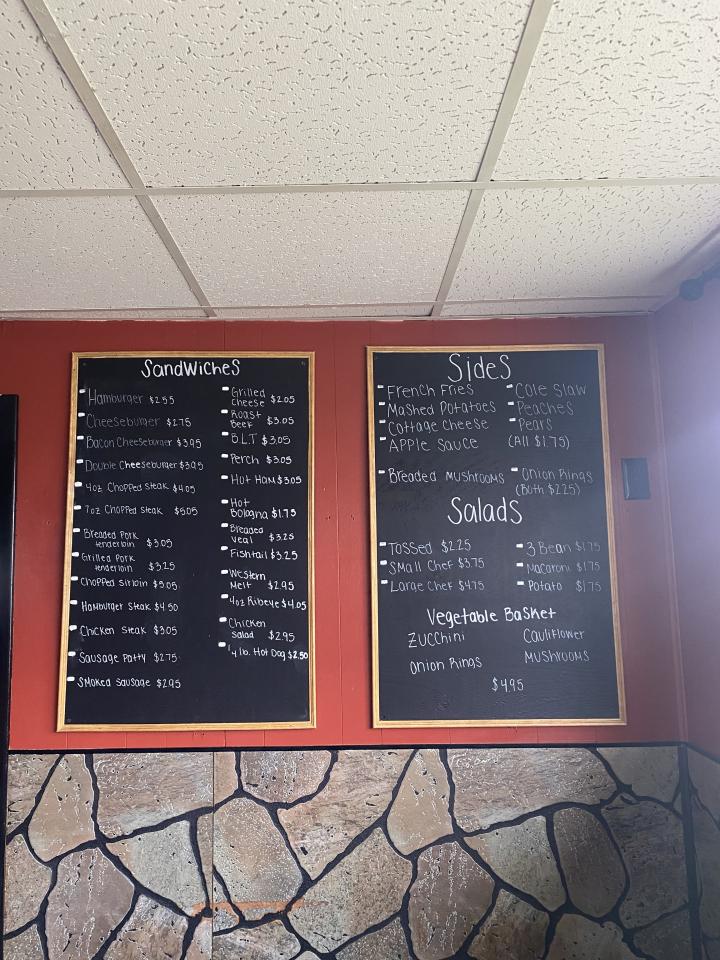 Sandwiches
Hamburger $2.55
Cheeseburger $2.75
Bacon Cheeseburger $3.95
Double Cheeseburger $3.95
4oz Chopped Steak $4.05
7oz Chopped Steak $5.05
Breaded Pork
tenderloin $3.05
Grilled Pork
tenderloin $3.25
Chopped Sirloin $5.05
Hamburger Steak $4.50
Chicken Steak $3.05
Sausage Patty $2.75
Smoked Sausage $2.95
Grilled
Cheese $2.05
Roast
Beef $3.05
B.L.T $3.05
Perch $3.05
Hot Ham $3.05
Hot
Bologna $1.75
Breaded
Veal $3.25
Fishtail $3.25
Western
Melt $2.95
4oz Ribeye $4.05
Chicken
Salad $2.95
1/4 lb. Hot Dog $2.50
Sides
French Fries
Mashed Potatoes
Cottage Cheese
Apple Sauce
Cole Slaw
Peaches
Pears
(All $1.75)
Breaded Mushrooms
Onion Rings
(Both $2.25)
Salads
Tossed $2.25
Small Chef $3.75
Large Chef $4.75
3 Bean $1.75
Macaroni $1.75
Potato $1.75
Vegetable Basket
Zucchini
Cauliflower
Onion Rings
Mushrooms
$4.95